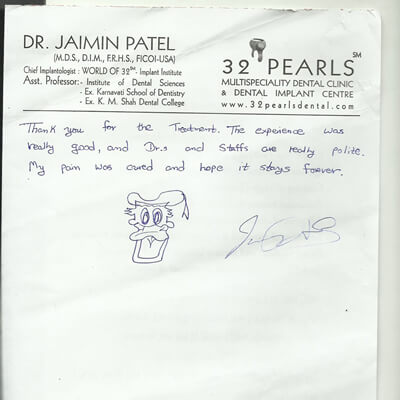 DR. JAIMIN PATEL
(M.D.S., D.I.M., F.R.H.S., FICOI-USA)
Chief Implantologist : WORLD OF 32™- Implant Institute
Asst. Professor:- - Institute of Dental Sciences
- Ex. Karnavati School of Dentistry
- Ex. K. M. Shah Dental College
32 PEARLS SM
MULTISPECIALITY DENTAL CLINIC
& DENTAL IMPLANT CENTRE
www.32pearlsdental.com
Thank you for the Treatment. The experience was
really good, and Dr.s and Staffs are really polite.
My pain was cured and hope it stays forever.